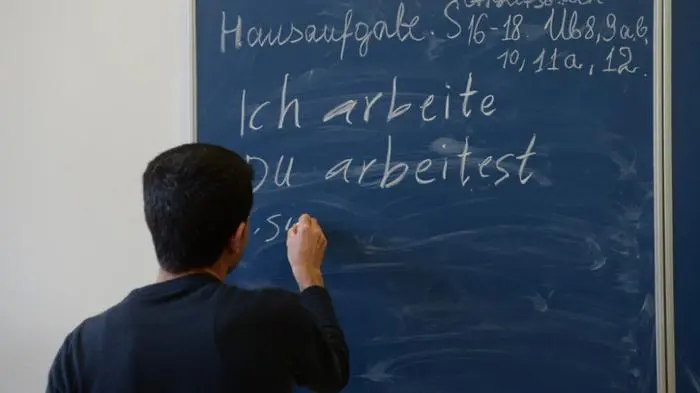 Hausaufgabe. S 16-18. Üb 8, 9 a, b,
10, 11a, 12.
Ich arbeite
Du arbeitest